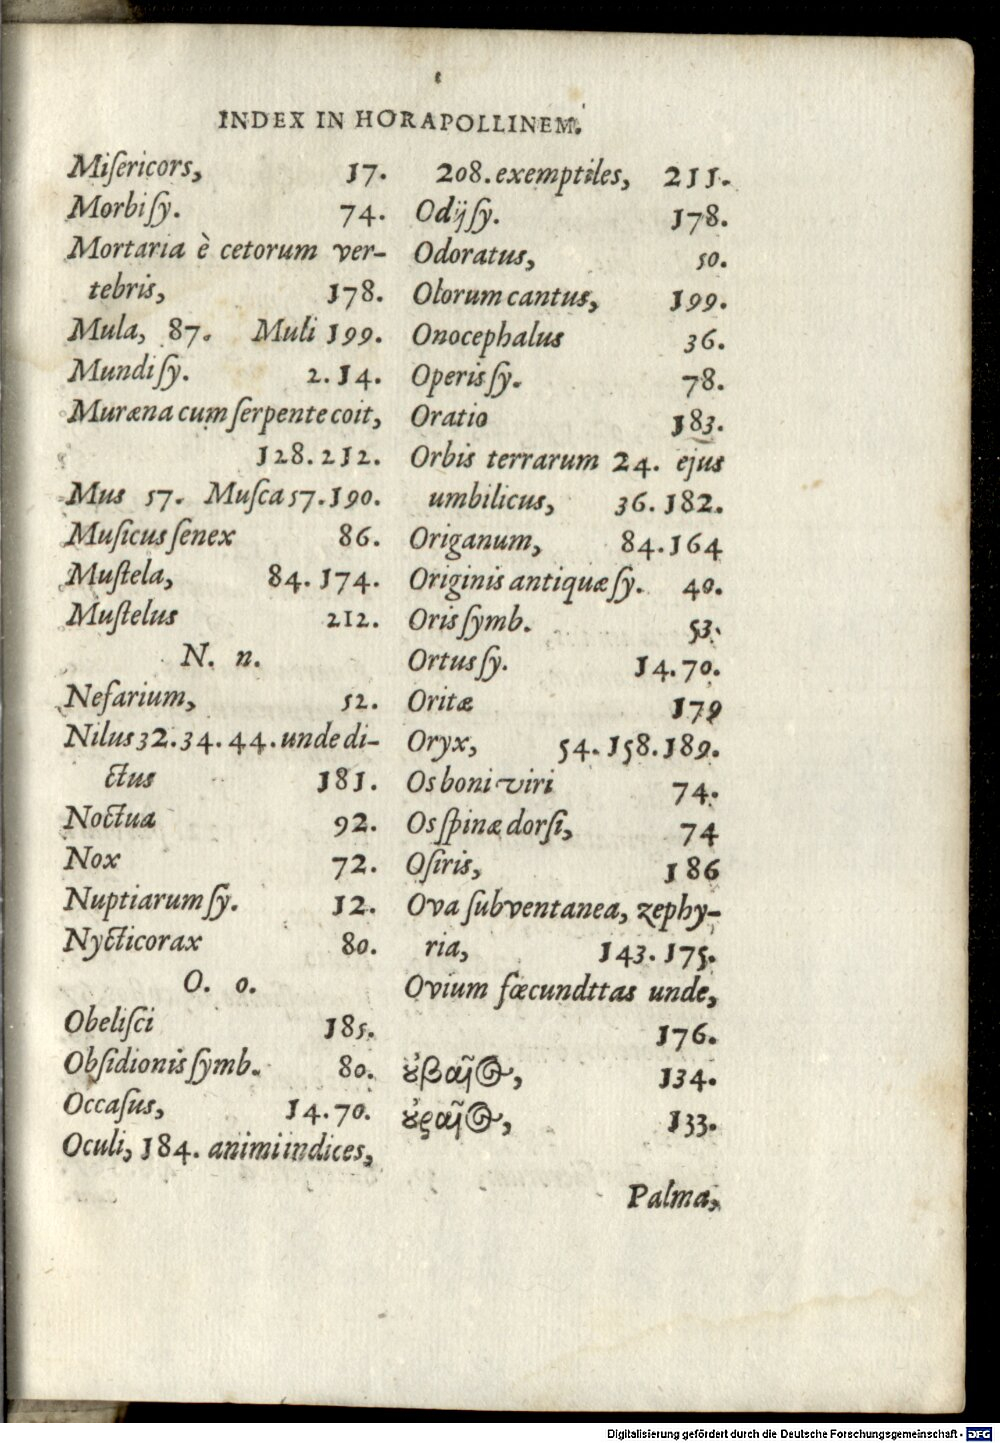 INDEX IN HORAPOLLINEM.
Miſericors, 17.
Morbi ſy. 74.
Mortaria è cetorum ver-
tebris, 178.
Mula, 87. Muli 199.
Mundi ſy. 2. 14.
Muræna cum ſerpente coit,
128. 212.
Mus 57. Muſca 57. 190.
Muſicus ſenex 86.
Muſtela, 84. 174.
Muſtelus 212.
N. n.
Nefarium, 52.
Nilus 32. 34. 44. unde di-
ctus 181.
Noctua 92.
Nox 72.
Nuptiarum ſy. 12.
Nycticorax 80.
O. o.
Obeliſci 185.
Obſidionis ſymb. 80.
Occaſus, 14. 70.
Oculi, 184. animi indices,
208. exemptiles, 211.
Odij ſy. 178.
Odoratus, 50.
Olorum cantus, 199.
Onocephalus 36.
Operis ſy. 78.
Oratio 183.
Orbis terrarum 24. ejus
umbilicus, 36. 182.
Origanum, 84. 164
Originis antiquæ ſy. 40.
Oris ſymb. 53.
Ortus ſy. 14. 70.
Oritæ 179
Oryx, 54. 158. 189.
Os boni viri 74.
Os ſpinæ dorſi, 74
Oſiris, 186
Ova ſubventanea, zephy-
ria, 143. 175.
Ovium fœcundttas unde,
176.
ȣ̓βαῖ⊙, 134.
ȣ̓ραῖ⊙, 133.
Palma,
Digitalisierung gefördert durch die Deutsche Forschungsgemeinschaft - DFG